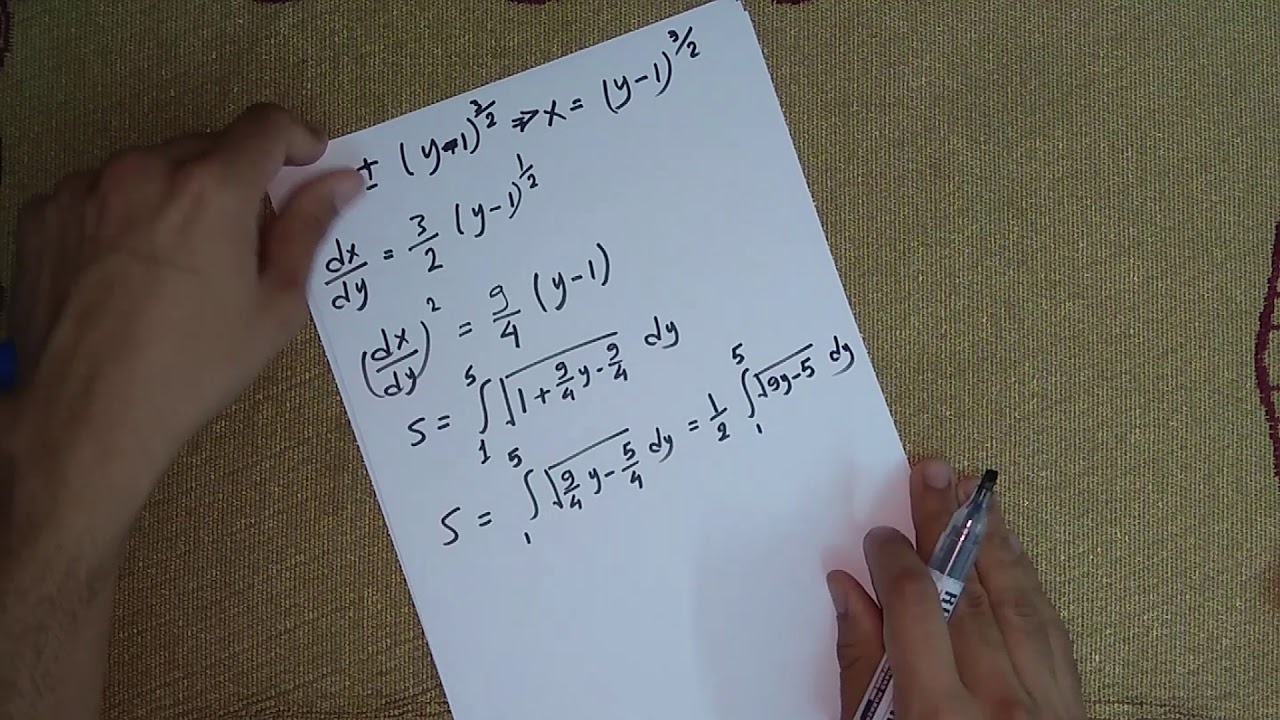 ± (y-1)^3/2 ⇒ x = (y-1)^3/2
dx/dy = 3/2 (y-1)^1/2
(dx/dy)^2 = 9/4 (y-1)
S = ∫_1^5 √(1 + 9/4 y - 9/4) dy
S = ∫_1^5 √(9/4 y - 5/4) dy = 1/2 ∫_1^5 √(9y-5) dy